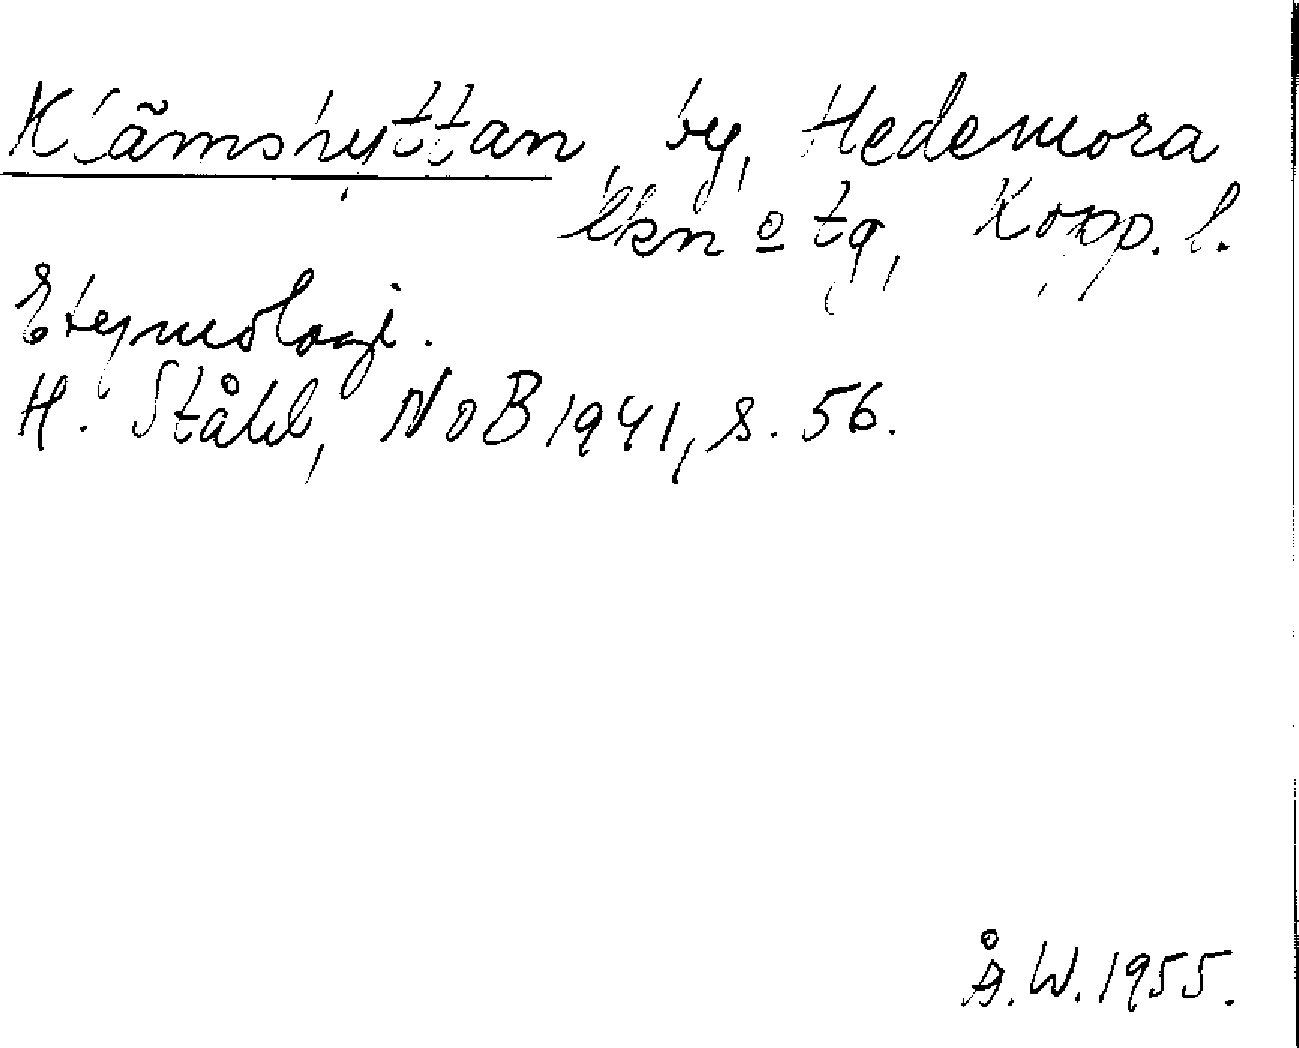 Klämshyttan, by, Hedemora
lkn o tg, Kopp. l.
Etymologi.
H. Ståhl, NoB 1941, s. 56.
Å.W. 1955.